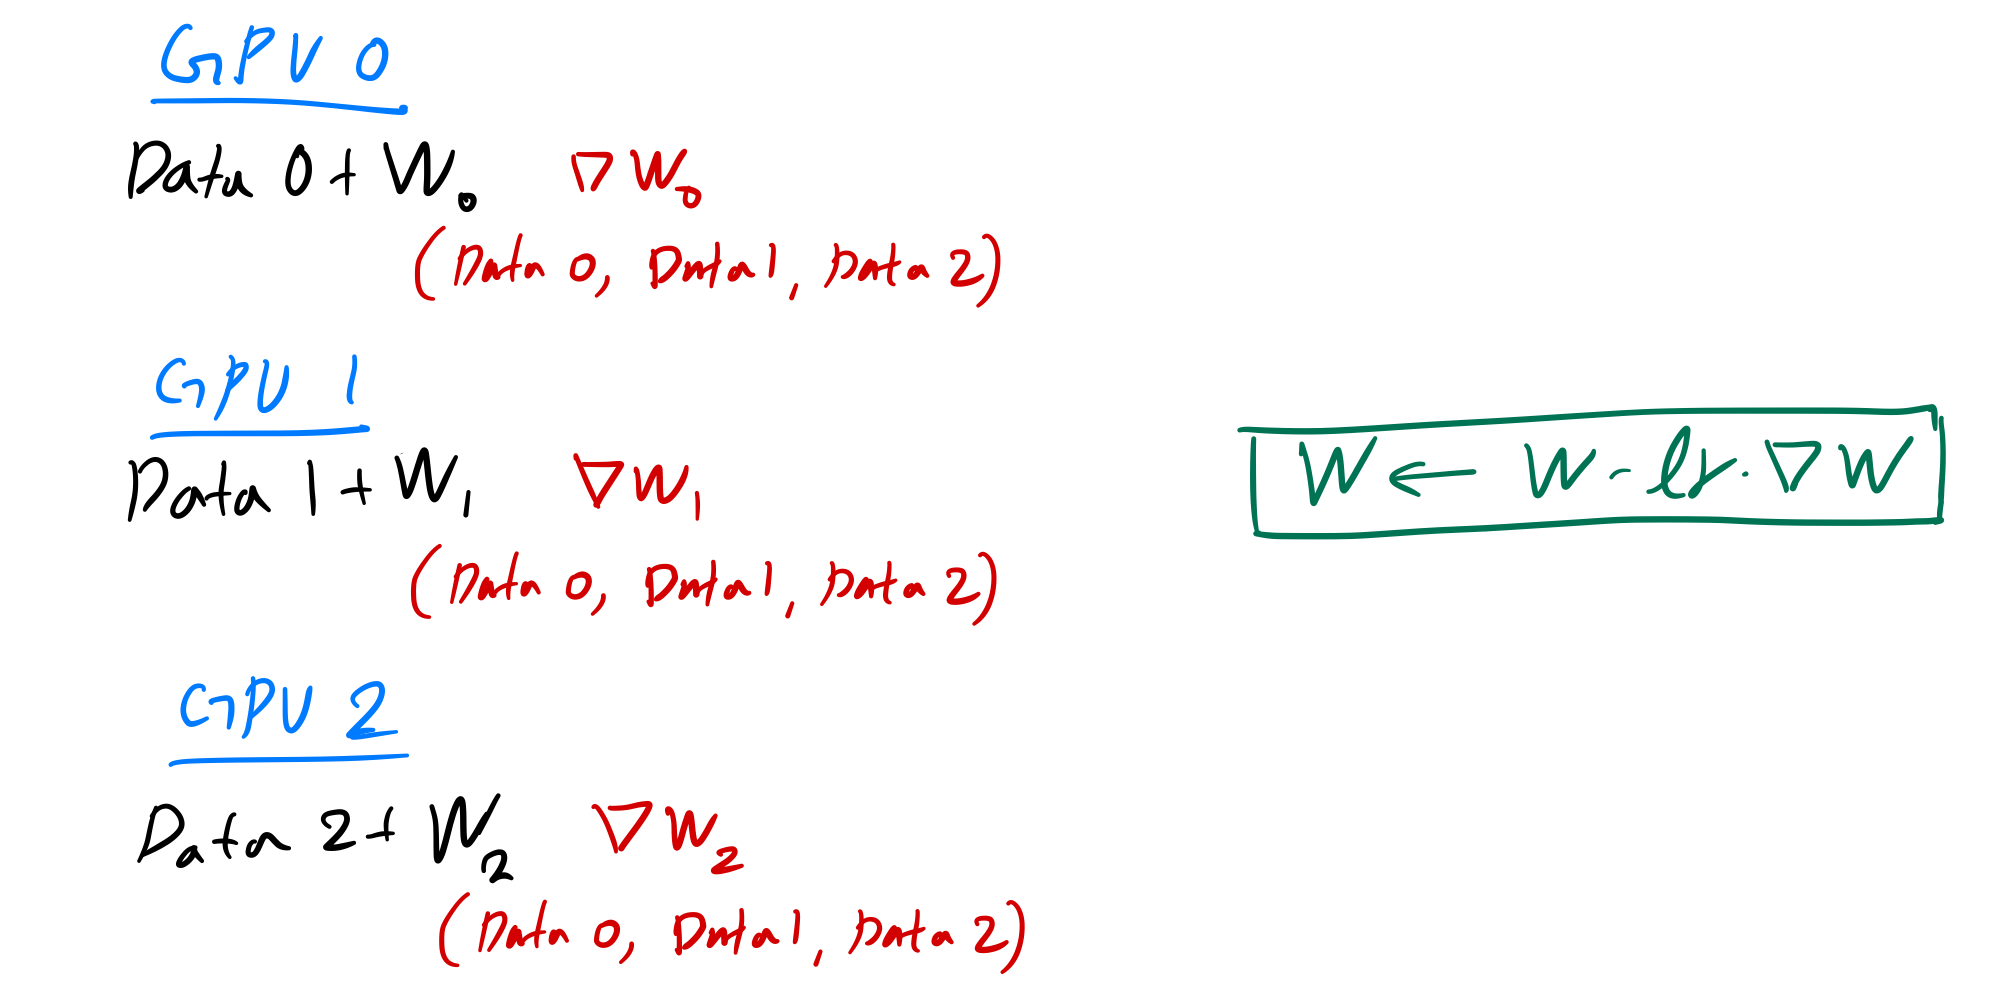 GPU 0
Data 0 + W₀ ∇W₀
(Data 0, Data 1, Data 2)
GPU 1
Data 1 + W₁ ∇W₁
(Data 0, Data 1, Data 2)
W ← W - lr · ∇W
GPU 2
Data 2 + W₂ ∇W₂
(Data 0, Data 1, Data 2)